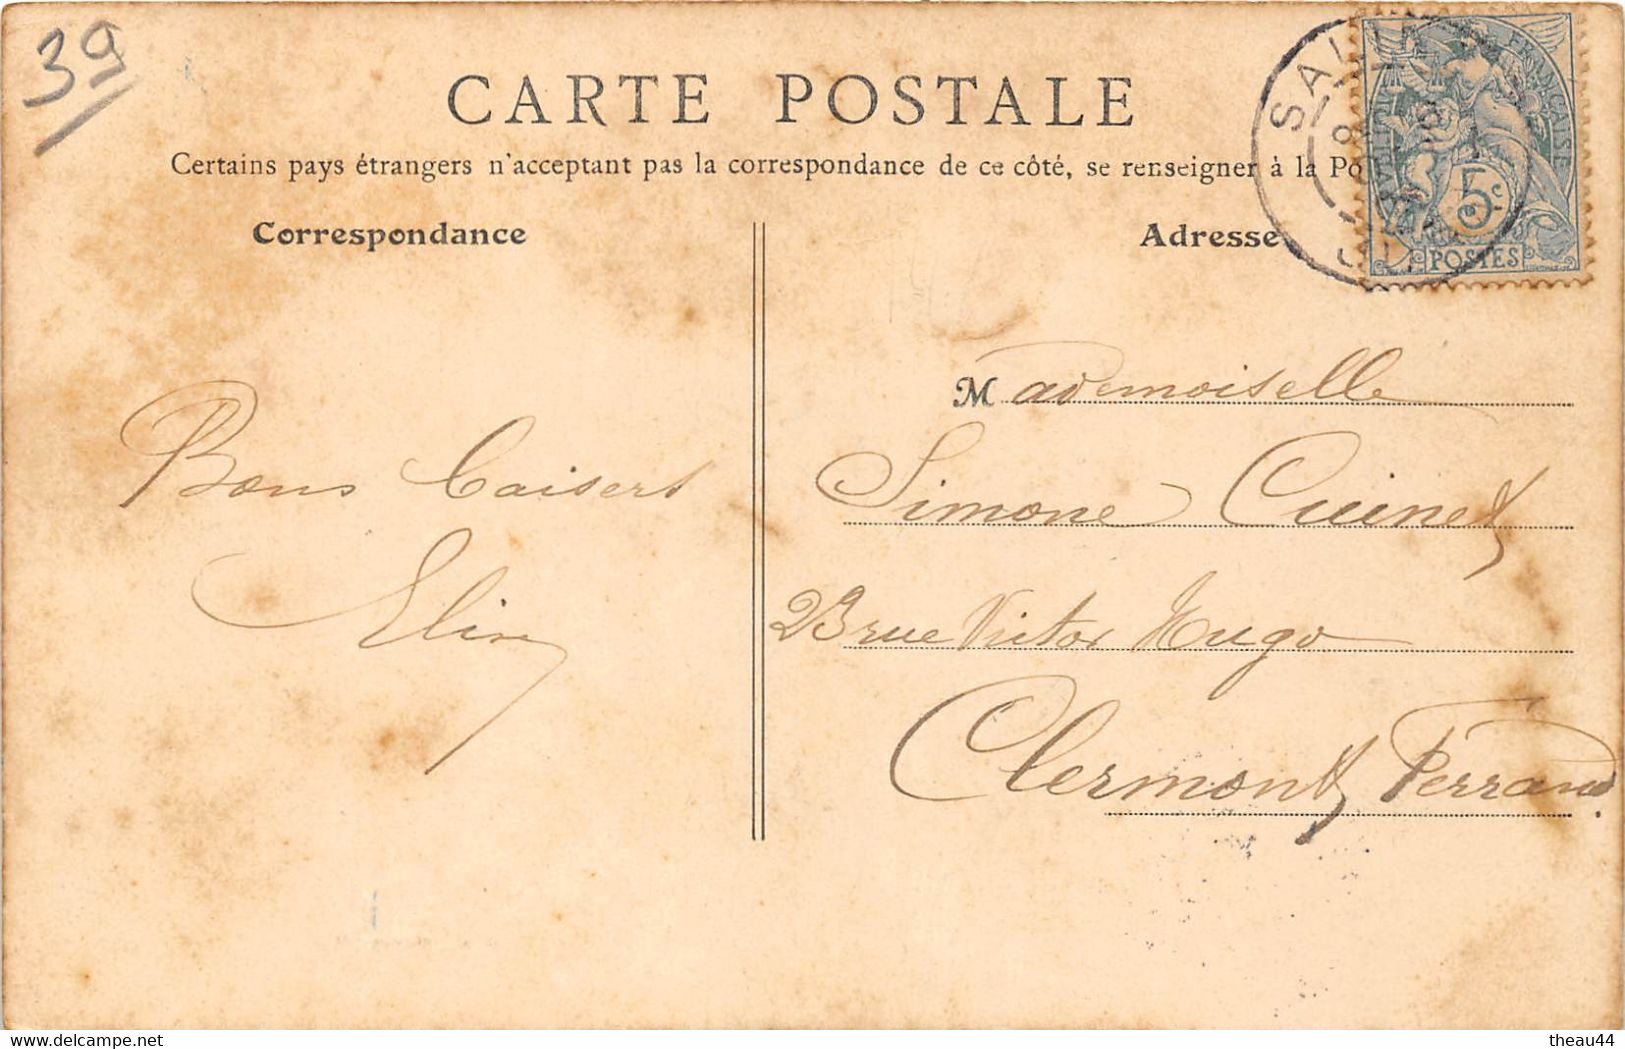 39
CARTE POSTALE
Certains pays étrangers n'acceptant pas la correspondance de ce côté, se renseigner à la Po
Correspondance
Adresse
SALI
RÉPUBLIQUE FRANÇAISE
5c
POSTES
Bons Baisers
Mademoiselle
Simone Cuinet
23 rue Victor Hugo
Clermont Ferrand.
www.delcampe.net
theau44